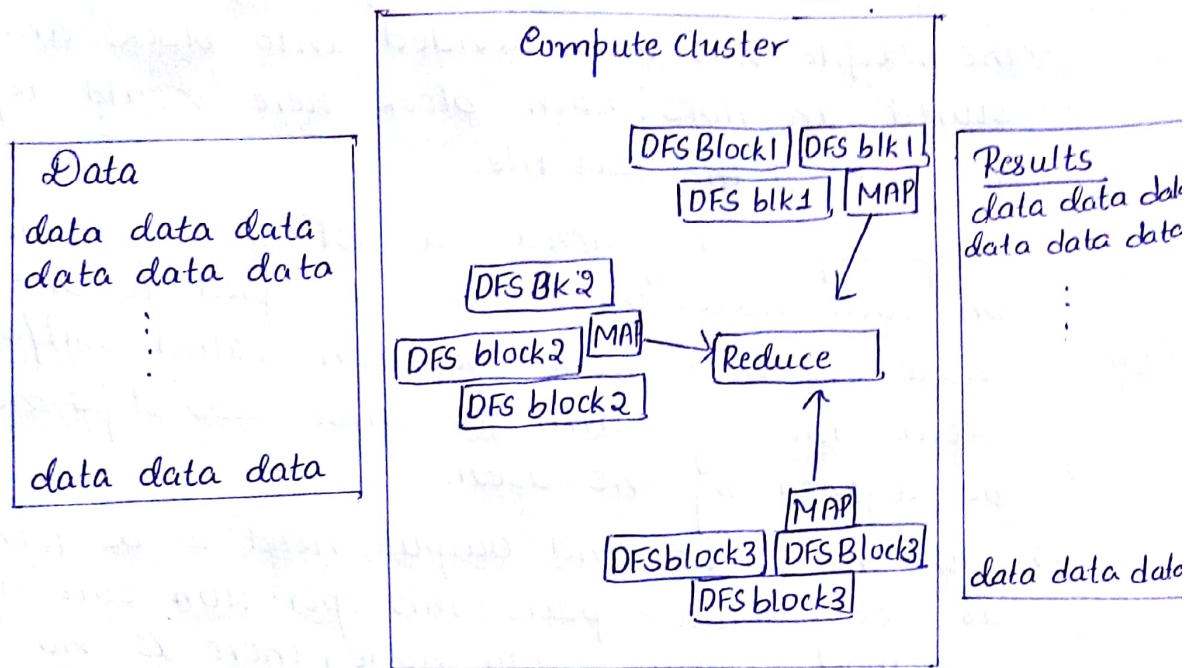 Compute Cluster
Data
data data data
data data data
data data data
DFS Block1 DFS blk1
DFS blk1 MAP
DFS Bk:2
MAP
DFS block2
DFS block2
Reduce
MAP
DFSblock3 DFSBlock3
DFS block3
Results
data data data
data data data
data data data